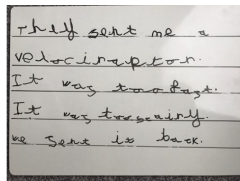 They sent me a
velociraptor.
It was too fast.
It was too scairy.
we sent it back.